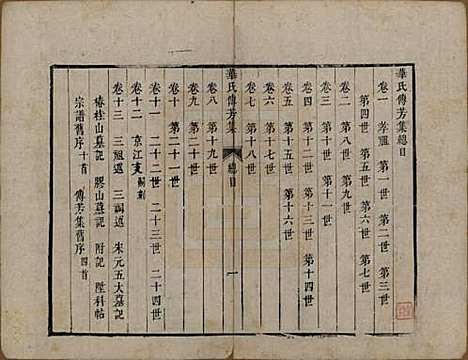 華氏傳芳集總目
卷一 孝祖 第一世 第二世 第三世
第四世 第五世 第六世 第七世
卷二 第八世 第九世 第十世
卷三 第十一世
卷四 第十二世 第十三世 第十四世
卷五 第十五世 第十六世
卷六 第十七世
卷七 第十八世
華氏傳芳集 總目 一
卷八 第十九世
卷九 第二十世
卷十 第二十一世
卷十一 二十二世 二十三世 二十四世
卷十二 京江支
卷十三 三祖述 三祠述 宋元五大墓記
椿桂山墓記 膠山墓記 附記 陞科帖
宗譜舊序十首 傳芳集舊序四首